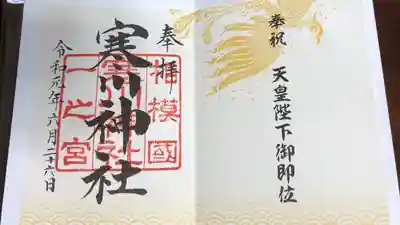 奉祝
天皇陛下御即位
奉拝
寒川神社
相模國
寒川神社
一之宮
令和元年六月二十六日